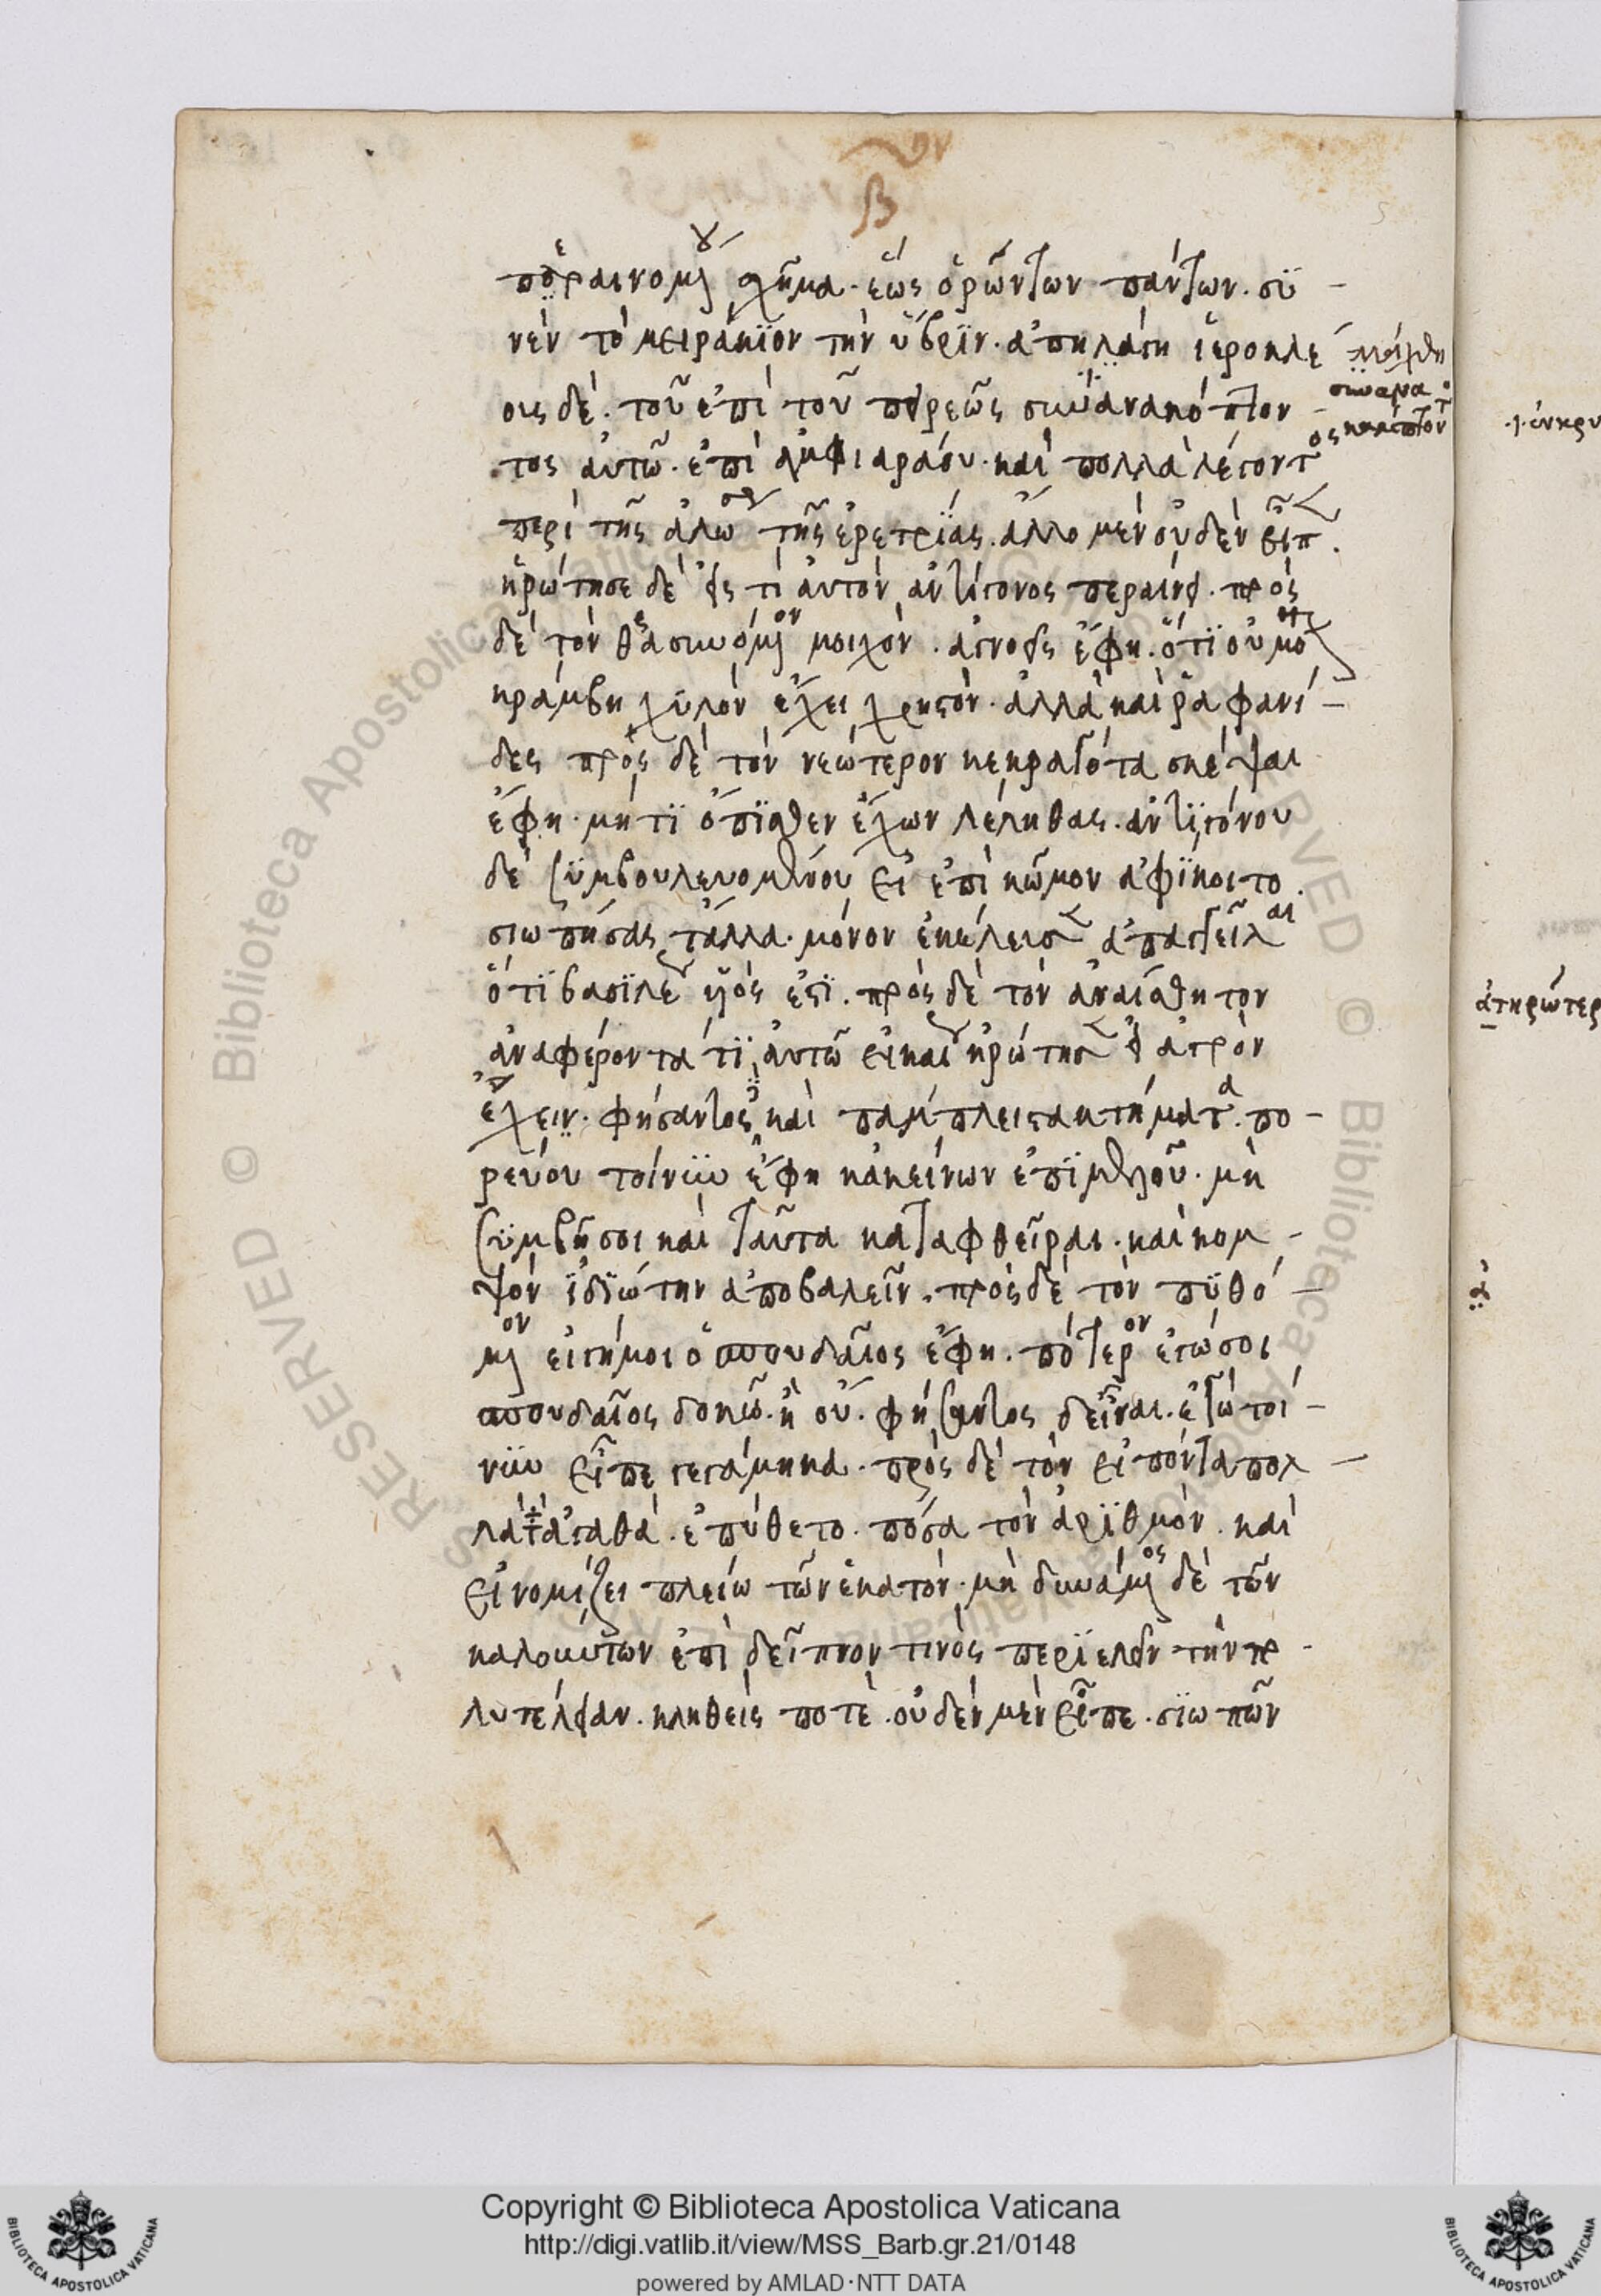 περαινομένου σχῆμα· ἕως ὁρώντων πάντων· συ-
νεὶν τὸ μειράκϊον τὴν ὕβρϊν· ἀπηλάγη ἱεροκλέ
ους δέ· τοῦ ἐπὶ τοῦ πειρεῶς συνανακόπτον-
τος αὐτῶ· ἐπὶ ἀμφιαράου· καὶ πολλὰ λέγοντος
περὶ τῆς ἁλώσεως τῆς ἐρετρίας· ἄλλο μὲν οὐδὲν εἶπεν.
ἠρώτησε δὲ εἰς τί αὐτὸν ἀντίγονος περαίνει· πρὸς
δὲ τὸν θρασυνόμενον μοιχόν· ἀγνοεῖς ἔφη· ὅτϊ οὐ μόνον
κράμβη χϋλὸν ἔχει χρηστόν· ἀλλὰ καὶ ῥαφανί-
δες πρὸς δὲ τὸν νεώτερον κεκραγότα σκέψαι
ἔφη· μή τϊ ὄπϊσθεν ἔχων λέληθας· ἀντϊγόνου
δὲ συμβουλευομένου εἰ ἐπὶ κῶμον ἀφΐκοιτο.
σιωπήσας τἄλλα· μόνον ἐκέλευσεν ἀπαγγεῖλαι
ὅτϊ βασϊλέως υἱός ἐστϊ· πρὸς δὲ τὸν ἀναίσθητον
ἀναφέροντά τϊ αὐτῶ εἰκαίως ἠρώτησεν εἰ ἀγρὸν
ἔχειν· φήσαντος καὶ παμπλεῖστα κτήματα· πο-
ρεύου τοίνϋν ἔφη κἀκείνων ἐπϊμελοῦ· μὴ
συμβῆ σοι καὶ ταῦτα καταφθεῖραι· καὶ κομ-
ψὸν ἰδϊώτην ἀποβαλεῖν· πρὸς δὲ τὸν πϋθό-
μενον εἰ γήμοι ὁ σπουδαῖος ἔφη· πότερον ἐγώ σοι
σπουδαῖος δοκῶ· ἢ οὔ· φήσαντος δ' εἶναι· ἐγὼ τοί-
νϋν εἶπε γεγάμηκα· πρὸς δὲ τὸν εἰπόντα πολ-
λὰ τὰ ἀγαθά· ἐπύθετο· πόσα τὸν ἀρϊθμόν· καὶ
εἰ νομίζει πλείω τῶν ἑκατόν· μὴ δυνάμενος δὲ τῶν
καλούντων ἐπὶ δεῖπνον τινὸς περϊελεῖν τὴν πο-
λυτέλειαν· κληθείς ποτε· οὐδὲν μὲν εἶπε· σϊωπῶν
ἀγηρώτερ
Copyright © Biblioteca Apostolica Vaticana
http://digi.vatlib.it/view/MSS_Barb.gr.21/0148
powered by AMLAD·NTT DATA